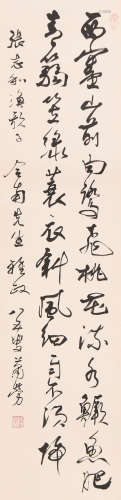 西塞山前白鹭飞桃花流水鳜鱼肥
青箬笠绿蓑衣斜风细雨不须归
张志和渔歌子 全甫先生雅政 八五叟萧劳